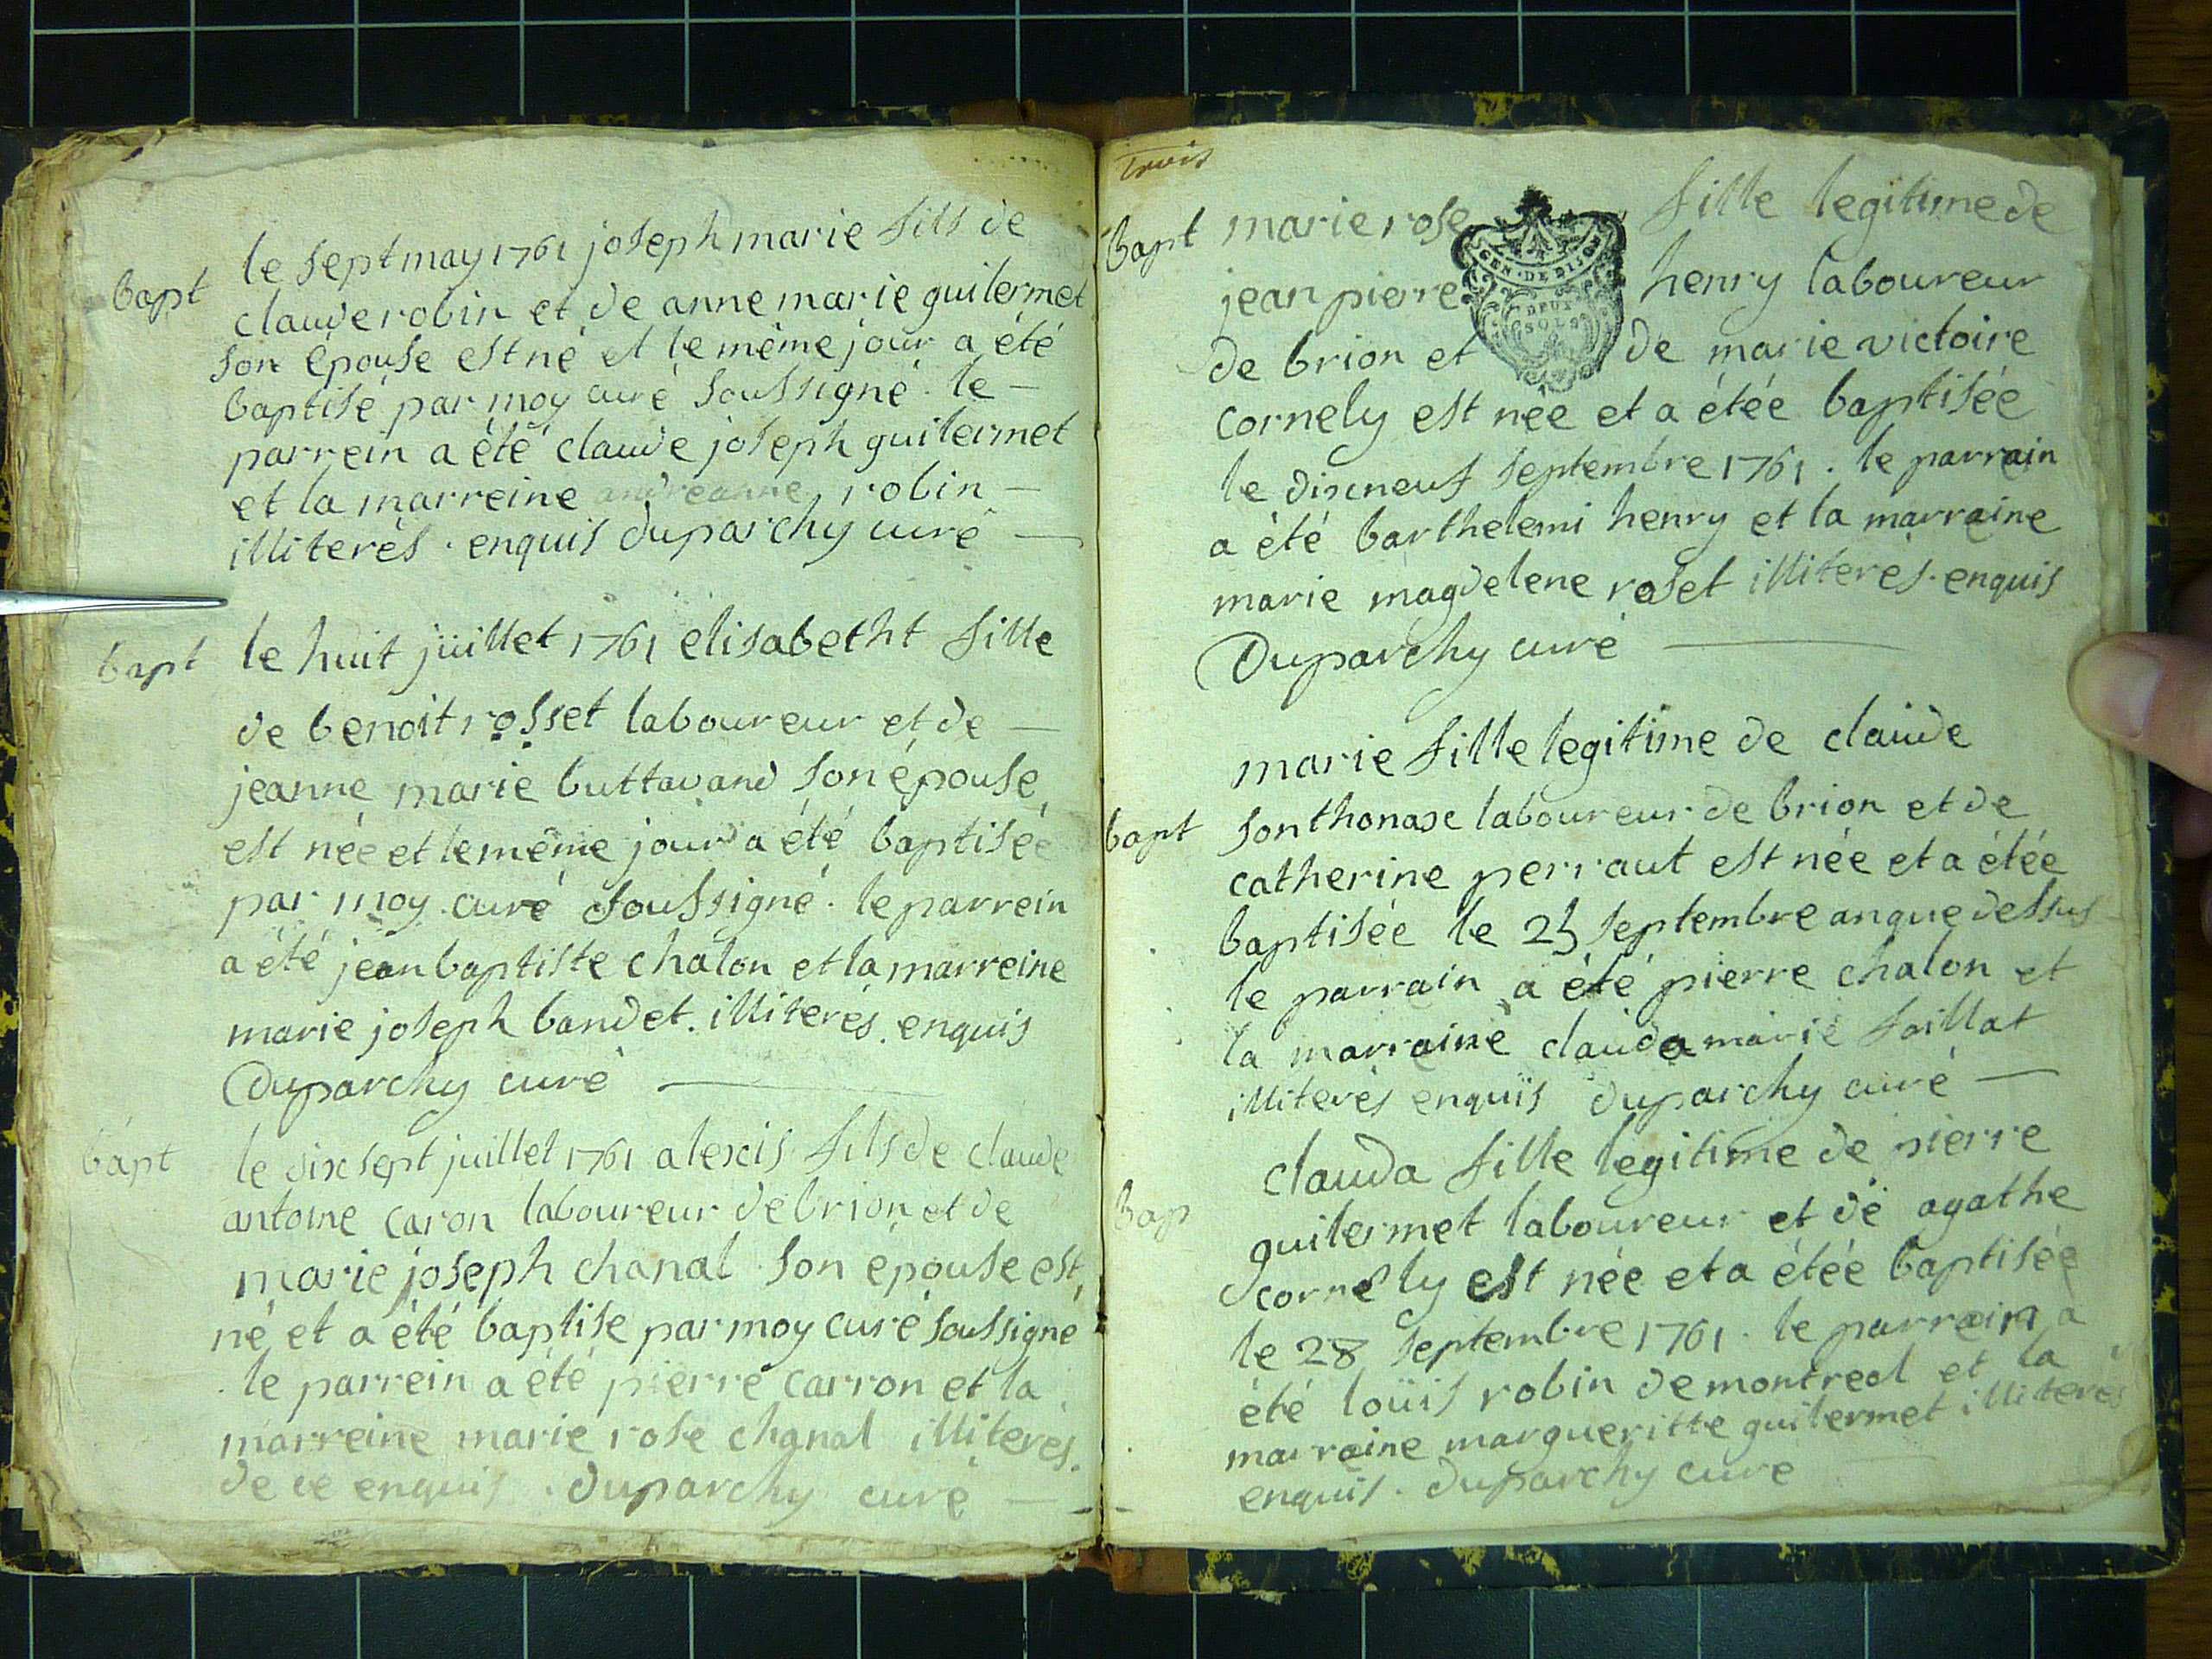 bapt
le sept may 1761 joseph marie fils de
claude robin et de anne marie guilermet
son épouse est né et le même jour a été
baptisé par moy curé soussigné. le —
parrein a été claude joseph guilermet
et la marreine andreanne robin —
illiterés. enquis duparchy curé —
bapt
le huit juillet 1761 elisabetht fille
de benoit rosset laboureur et de —
jeanne marie buttavand son épouse
est née et le même jour a été baptisée
par moy curé soussigné. le parrein
a été jean baptiste chalon et la marreine
marie joseph bandet. illiterés. enquis
Duparchy curé —
bapt
le dixsept juillet 1761 alexis fils de claude
antoine caron laboureur de brion et de
marie joseph chanal son épouse est
né et a été baptise par moy curé soussigné
le parrein a été pierre carron et la
marreine marie rose chanal illiterés.
de ce enquis. duparchy curé —
trois
bapt
marie rose fille legitime de
jean pierre henry laboureur
de brion et de marie victoire
GEN·DE DIJON
DEUX
SOLS
cornely est nee et a étée baptisée
le dixneuf septembre 1761. le parrain
a été barthelemi henry et la marraine
marie magdelene roset illiterés. enquis
Duparchy curé —
bapt
marie fille legitime de claude
sonthonax laboureur de brion et de
catherine perraut est née et a étée
baptisée le 25 septembre an que dessus
le parrain a été pierre chalon et
la marraine clauda marie saillat
illiterés enquis duparchy curé —
bap
clauda fille legitime de pierre
guilermet laboureur et de agathe
cornely est née et a étée baptisée
le 28 septembre 1761. le parrain a
été loüis robin de montreal et la
marraine margueritte guilermet illiterés
enquis. duparchy curé